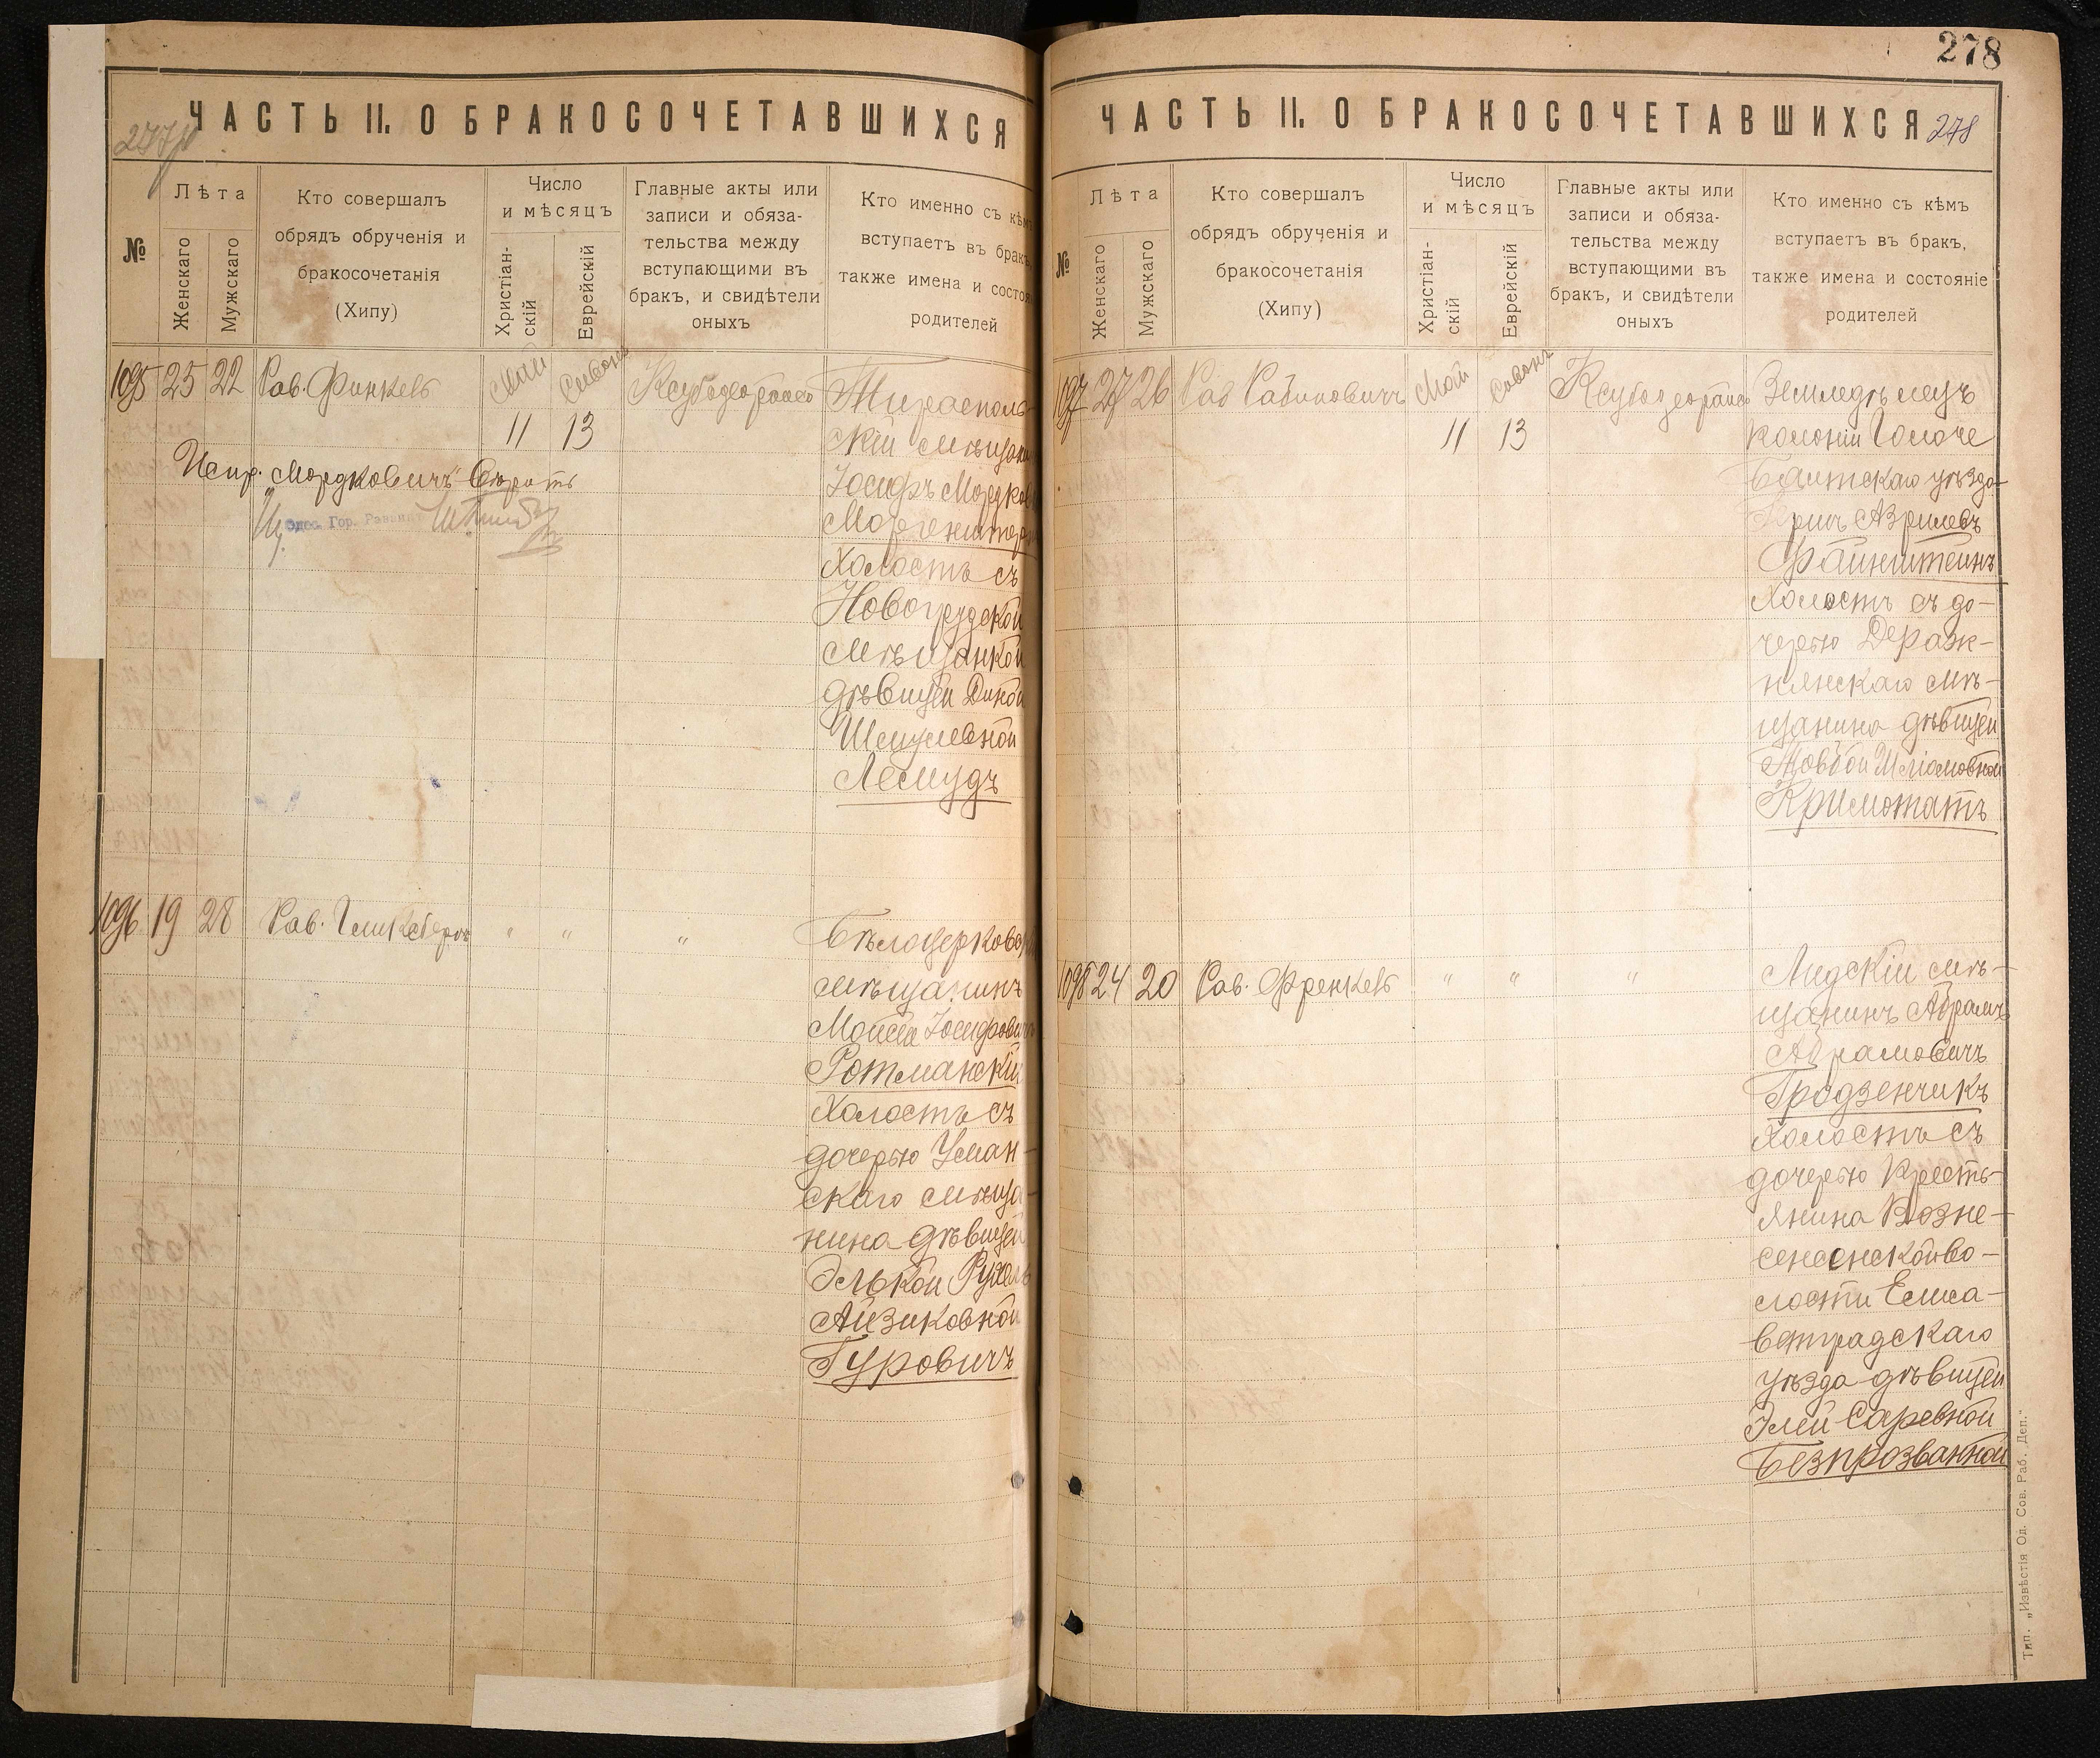 ЧАСТЬ II. О БРАКОСОЧЕТАВШИХСЯ
№
Лѣта
Женскаго
Мужскаго
Кто совершалъ
обрядъ обрученія и
бракосочетанія
(Хипу)
Число
и мѣсяцъ
Христіан-
скій
Еврейскій
Главные акты или
записи и обяза-
тельства между
вступающими въ
бракъ, и свидѣтели
оныхъ
Кто именно съ кѣмъ
вступаетъ въ бракъ,
также имена и состоя
родителей
1095 23 22 Рав. Финкель Май Сивонъ
11 13
Тирасполь-
скій мѣщан
Іосифъ Мордков
Моргенштерн
холостъ съ
Новогрудской
мѣщанкой
дѣвицей Диной
Шмулевной
Лесмудъ
Испр. „Мордковичъ" вѣрить
Одес. Гор. Раввин
1096 19 28 Рав. Гликсберъ " " "
Бѣлоцерковск
мѣщанинъ
Мойсей Іосифович
Ротманскій
холостъ съ
дочерью Уман-
скаго мѣща-
нина дѣвицей
Элькой Рухель
Айзиковной
Гуровичъ
278
ЧАСТЬ II. О БРАКОСОЧЕТАВШИХСЯ 278
№
Лѣта
Женскаго
Мужскаго
Кто совершалъ
обрядъ обрученія и
бракосочетанія
(Хипу)
Число
и мѣсяцъ
Христіан-
скій
Еврейскій
Главные акты или
записи и обяза-
тельства между
вступающими въ
бракъ, и свидѣтели
оныхъ
Кто именно съ кѣмъ
вступаетъ въ бракъ,
также имена и состояніе
родителей
1097 27 26 Рав Рабиновичъ Май Сивонъ
11 13
Земледѣлецъ
колоніи Голоче
Балтскаго уѣзда
Азрилевъ
Файнштейнъ
холостъ съ до-
черью Дераж-
нянскаго мѣ-
щанина дѣвицей
Шліомовной
Криможатъ
1098 24 20 Рав. Френкель " " "
Лидскій мѣ-
щанинъ Абрамъ
Абрамовичъ
Гродзенчикъ
холостъ съ
дочерью Кресть-
янина Возне-
сенсенской во-
лости Елиса-
ветградскаго
уѣзда дѣвицей
Элей Саревной
Безпрозванной
Тип. „Извѣстія Од. Сов. Раб. Деп."